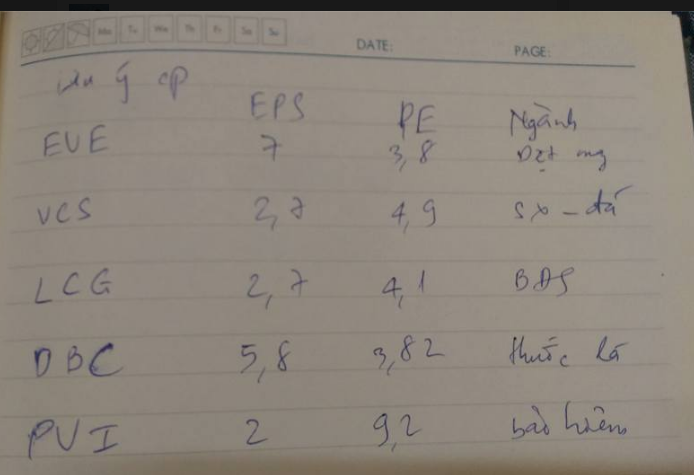 Mo Tu We Th Fr Sa Su
DATE: PAGE:
lưu ý cp
EPS PE Ngành
EVE 7 3,8 Dệt may
VCS 2,7 4,9 sx - đá
LCG 2,7 4,1 BĐS
DBC 5,8 3,82 thuốc lá
PVI 2 9,2 bảo hiểm